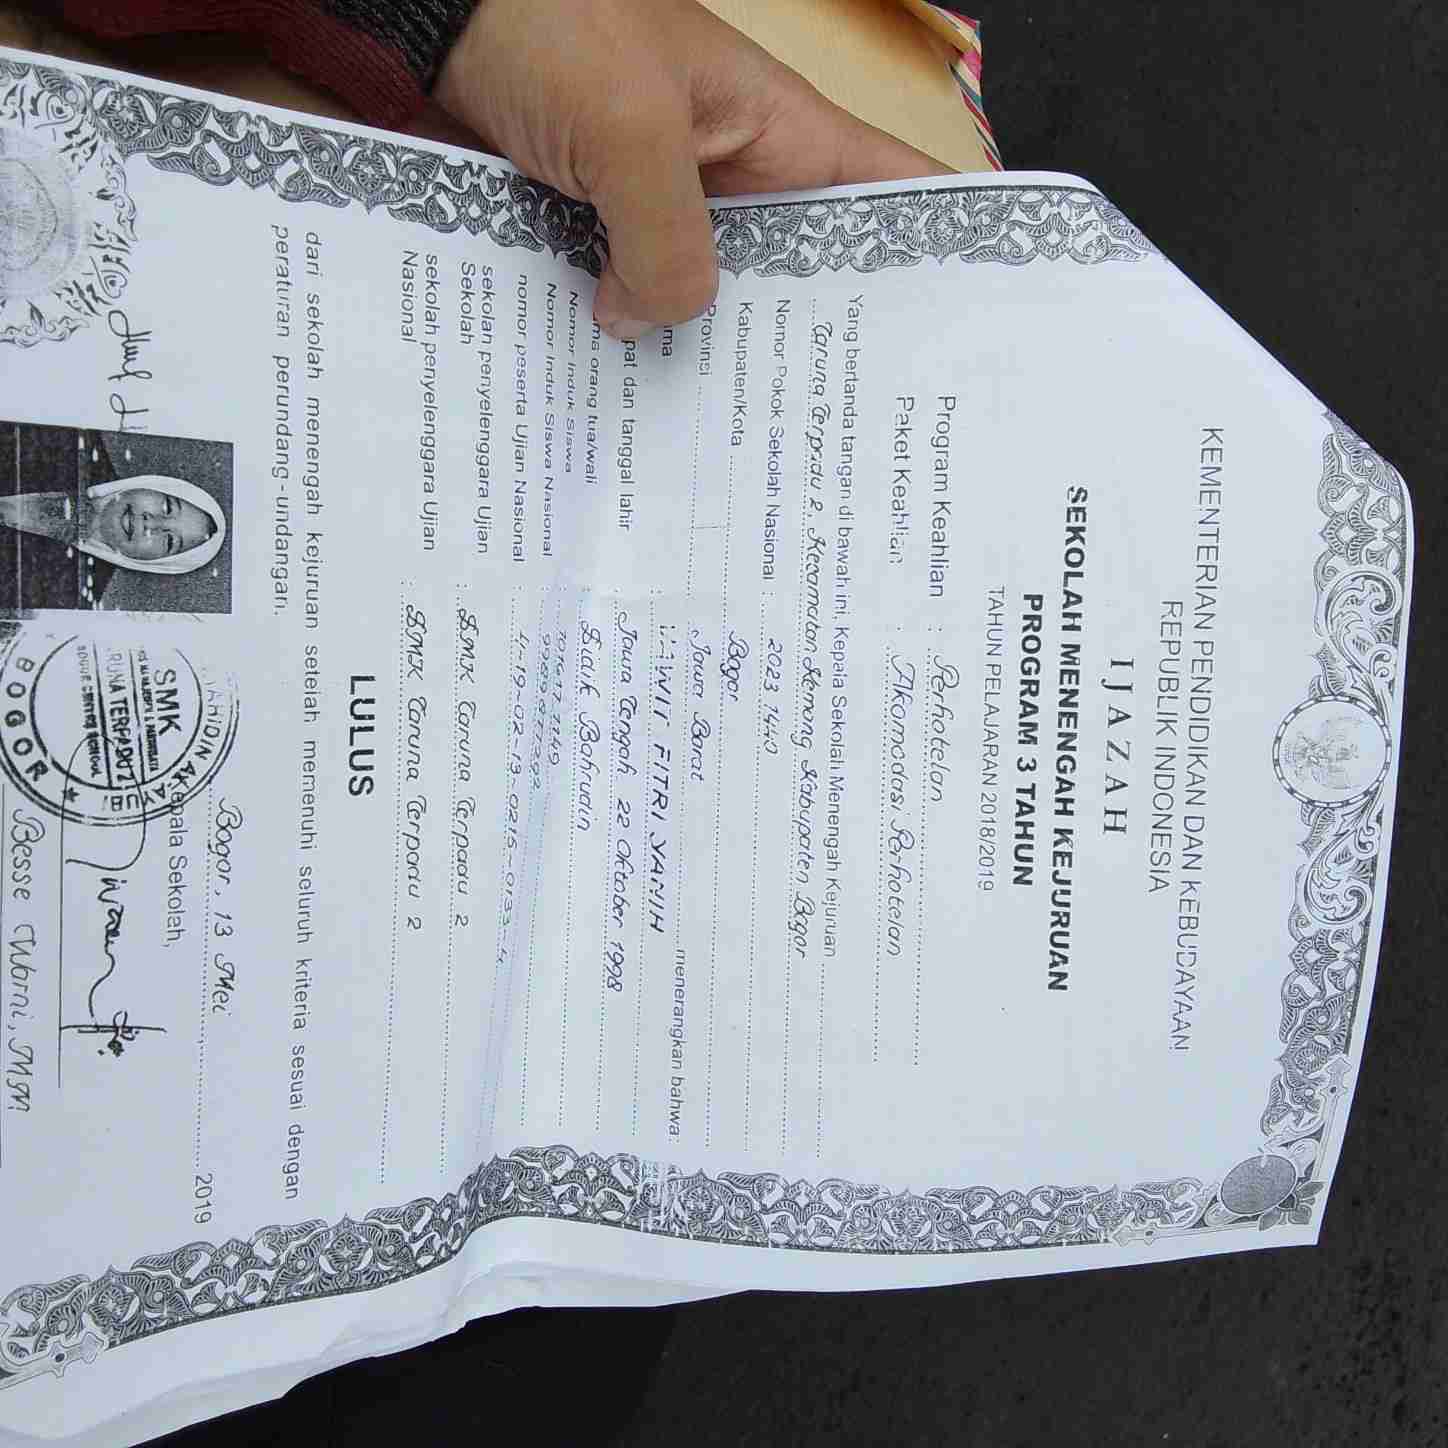 KEMENTERIAN PENDIDIKAN DAN KEBUDAYAAN
REPUBLIK INDONESIA
IJAZAH
SEKOLAH MENENGAH KEJURUAN
PROGRAM 3 TAHUN
TAHUN PELAJARAN 2018/2019
Program Keahlian : Perhotelan
Paket Keahlian : Akomodasi Perhotelan
Yang bertanda tangan di bawah ini, Kepala Sekolah Menengah Kejuruan
Taruna Terpadu 2 Kecamatan Kemang Kabupaten Bogor
Nomor Pokok Sekolah Nasional : 2023 1440
Kabupaten/Kota Bogor
Provinsi Jawa Barat menerangkan bahwa:
ma : FITRI YANIH
pat dan tanggal lahir : Jawa Tengah, 22 Oktober 1998
ma orang tua/wali : Didik Bahrudin
Nomor Induk Siswa :
Nomor Induk Siswa Nasional :
nomor peserta Ujian Nasional : 4-19-02-13-0215-0133-4
sekolah penyelenggara Ujian Sekolah : SMK Taruna Terpadu 2
sekolah penyelenggara Ujian Nasional : SMK Taruna Terpadu 2
LULUS
dari sekolah menengah kejuruan setelah memenuhi seluruh kriteria sesuai dengan
peraturan perundang-undangan.
Bogor, 13 Mei 2019
Kepala Sekolah,
SMK
BOGOR
Besse Warni, MM